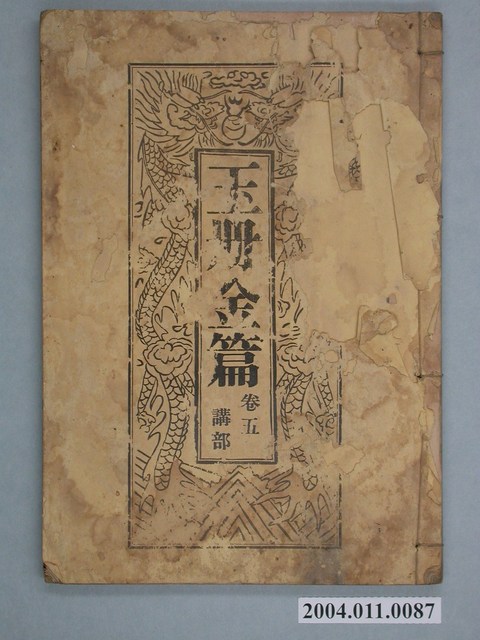 玉册金篇
卷五
講部
2004.011.0087